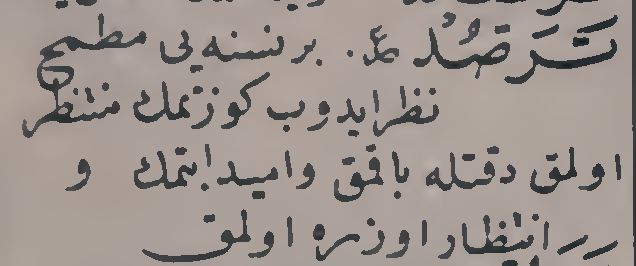 تَرَصُّدْ ع. برنسنه‌یی مطمح
نظر ایدوب کوزتمك منتظر
اولمق دقتله باقمق وامید ایتمك و
انتظار اوزره اولمق